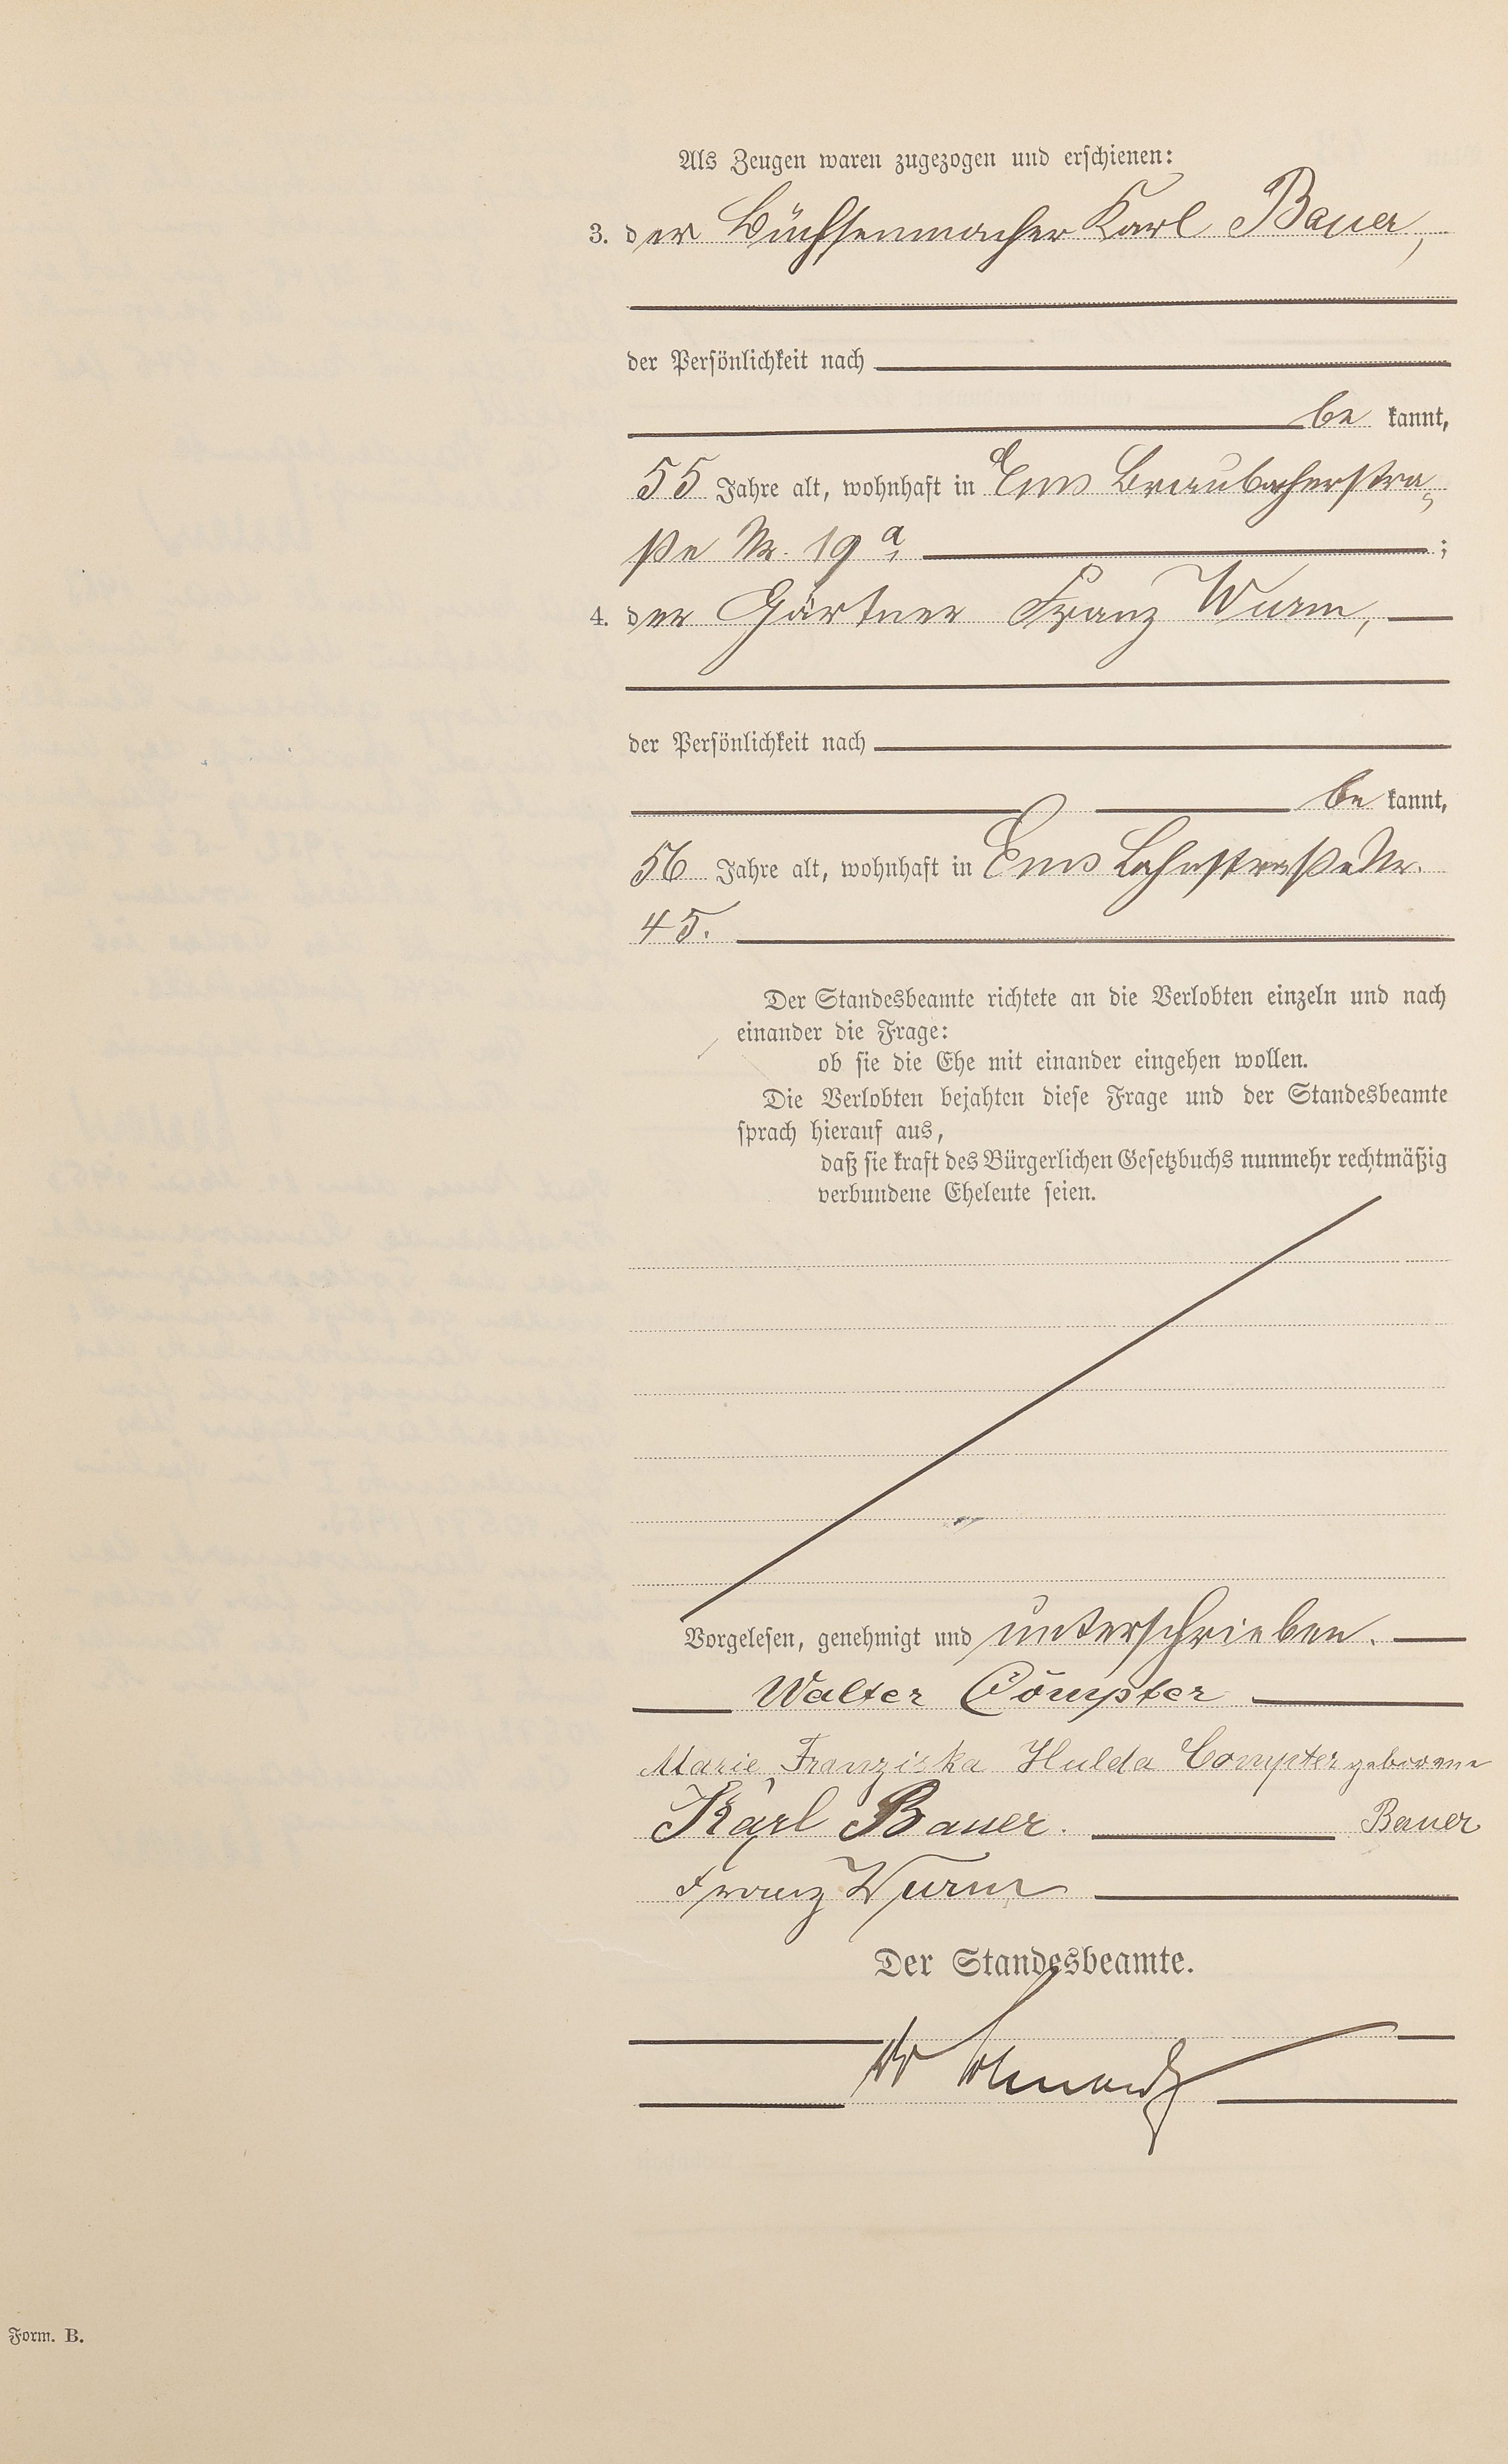 Als Zeugen waren zugezogen und erschienen:
3. der Büchsenmacher Karl Bauer,
der Persönlichkeit nach
be kannt,
55 Jahre alt, wohnhaft in Ems Braubacherstra-
ße Nr. 19a ;
4. der Gärtner Franz Wurm,
der Persönlichkeit nach
be kannt,
56 Jahre alt, wohnhaft in Ems Lahnstraße Nr.
45.
Der Standesbeamte richtete an die Verlobten einzeln und nach
einander die Frage:
ob sie die Ehe mit einander eingehen wollen.
Die Verlobten bejahten diese Frage und der Standesbeamte
sprach hierauf aus,
daß sie kraft des Bürgerlichen Gesetzbuchs nunmehr rechtmäßig
verbundene Eheleute seien.
Vorgelesen, genehmigt und unterschrieben.
Walter Compter
Marie Franziska Hulda Compter geborene
Karl Bauer. Bauer
Franz Wurm
Der Standesbeamte.
Form. B.